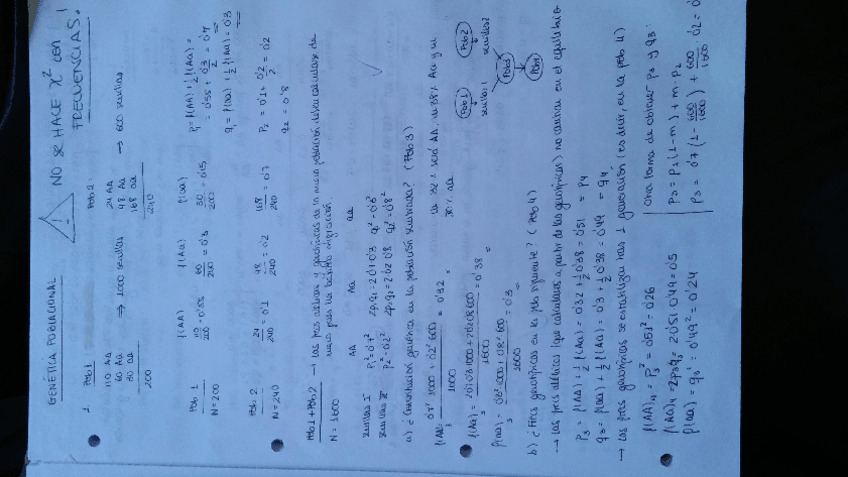 GENÉTICA POBLACIONAL
NO SE HACE X² CON FRECUENCIAS!
1. Pob 1
110 AA
60 Aa → 1000 semillas
30 aa
200
Pob 2:
24 AA
48 Aa → 600 semillas
168 aa
240
f(AA) f(Aa) f(aa)
Pob 1 110/200 = 0'55 60/200 = 0'3 30/200 = 0'15
N=200
p₁ = f(AA) + ½ f(Aa) =
= 0'55 + 0'3/2 = 0'7
q₁ = f(aa) + ½ f(Aa) = 0'3
Pob 2 24/240 = 0'1 48/240 = 0'2 168/240 = 0'7
N=240
p₂ = 0'1 + 0'2/2 = 0'2
q₂ = 0'8
Pob 1 + Pob 2 → las frecs alélicas y genotípicas de la nueva población
N = 1600
AA Aa aa
semillas I p₁² = 0'7² 2p₁q₁ = 2·0'7·0'3 q² = 0'3²
semillas II p₂² = 0'2² 2p₂q₂ = 2·0'2·0'8 q² = 0'8²
a) ¿Constitución genética en la población sembrada? (Pob 3)
f(AA)₃ = 0'7²·1000 + 0'2²·600 / 1600 = 0'32
f(Aa)₃ = 2·0'7·0'3·1000 + 2·0'2·0'8·600 / 1600 = 0'38
f(aa)₃ = 0'3²·1000 + 0'8²·600 / 1600 = 0'3
un 32% será AA, un 38% Aa y un
30% aa
Pob 1 Pob 2
semillas 1 semillas 2
Pob3
Pob4
b) ¿Frecs genotípicas en la pob siguiente? (Pob 4)
→ las frecs alélicas (que calculamos a partir de las genotípicas) no cambian en el equilibrio
p₃ = f(AA) + ½ f(Aa) = 0'32 + ½ 0'38 = 0'51 = p₄
q₃ = f(aa) + ½ f(Aa) = 0'3 + ½ 0'38 = 0'49 = q₄
→ Las frecs genotípicas se estabilizan tras 1 generación (es decir, en la pob 4)
f(AA)₄ = p₃² = 0'51² = 0'26
f(Aa)₄ = 2p₃q₃ = 2·0'51·0'49 = 0'5
f(aa) = q₃² = 0'49² = 0'24
otra forma de obtener p₃ y q₃:
p₃ = p₁(1-m) + m·p₂
p₃ = 0'7 (1 - 600/1600) + 600/1600 · 0'2 =